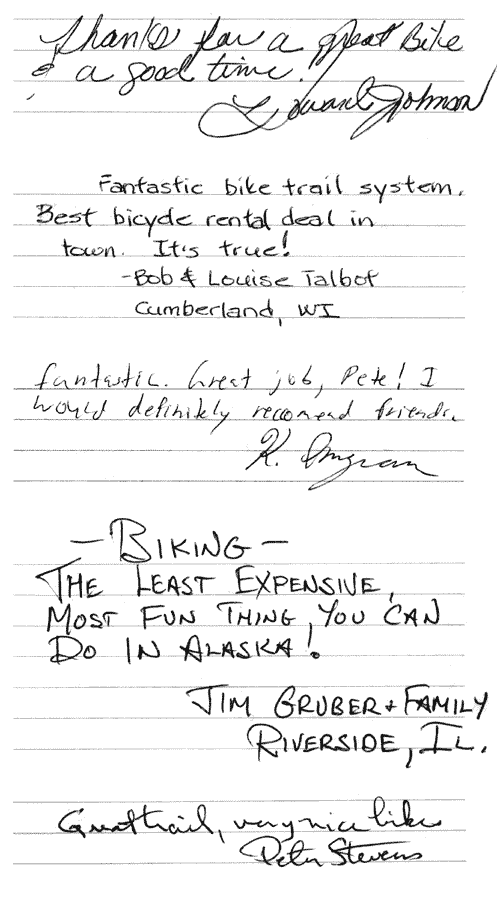 Thanks for a great Bike
& a good time!
Edward Johnson
Fantastic bike trail system.
Best bicycle rental deal in
town. It's true!
-Bob & Louise Talbot
Cumberland, WI
fantastic. Great job, Pete! I
would definitely recomend friends.
K.
—BIKING—
THE LEAST EXPENSIVE,
MOST FUN THING, YOU CAN
DO IN ALASKA!
JIM GRUBER + FAMILY
RIVERSIDE, IL.
Great trail, very nice bike
Peter Stevens